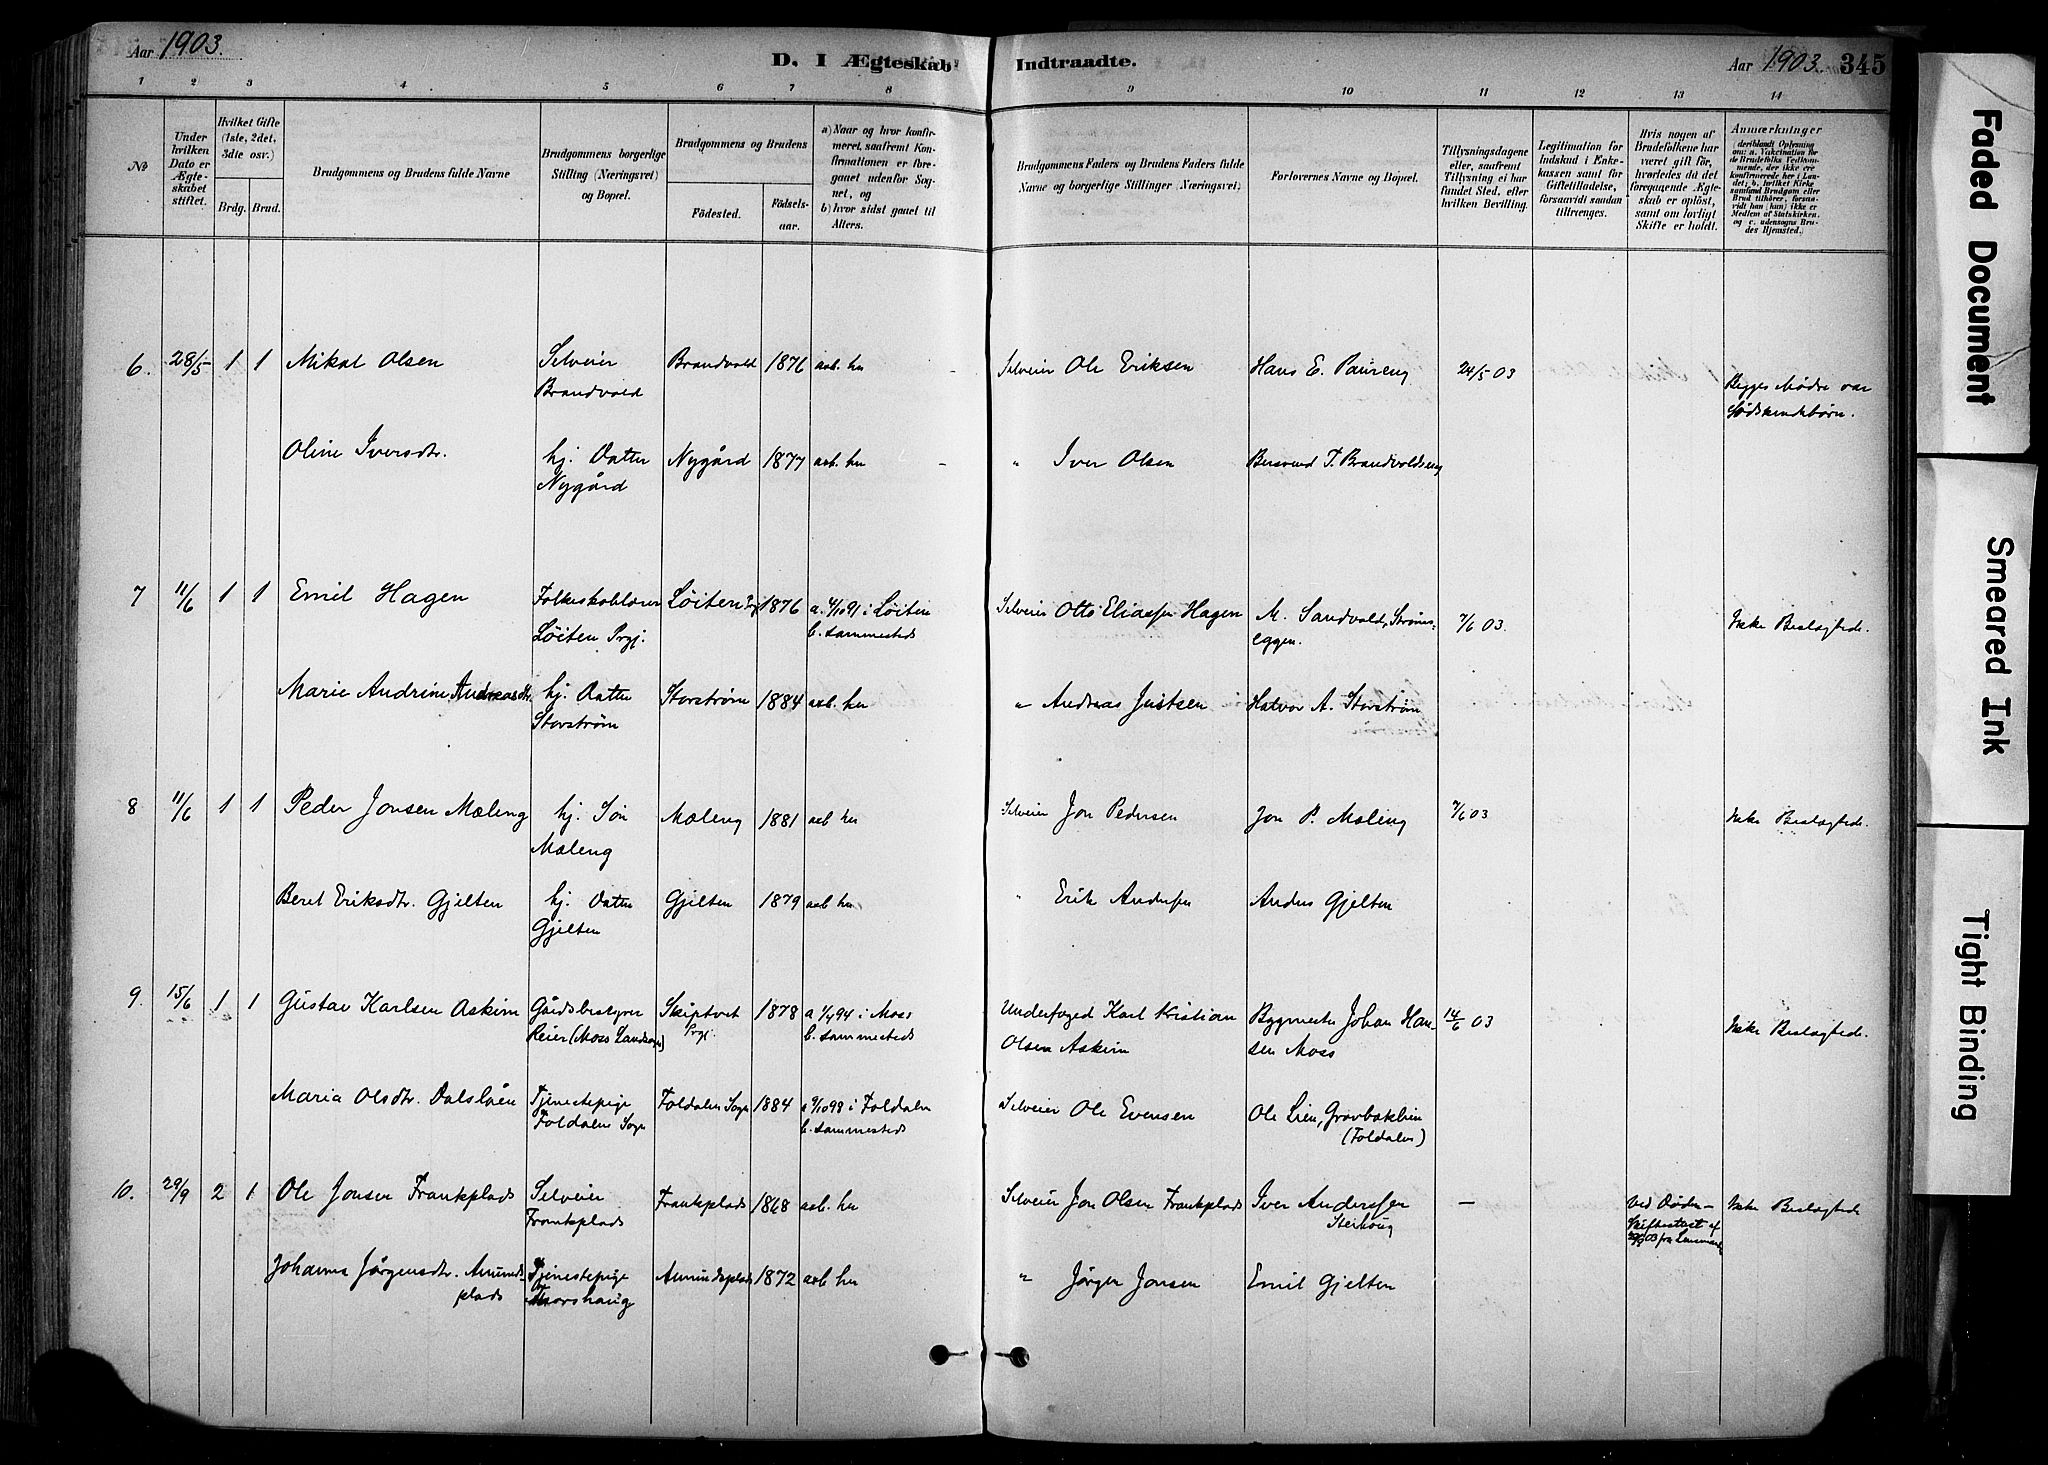 Aar 1903.
D. I Ægteskab Indtraadte.
Aar 1903. 345
1 2 3 4 5 6 7 8 9 10 11 12 13 14
№
Under hvilken Dato er Ægteskabet stiftet.
Hvilket Gifte (1ste, 2det, 3die osv.)
Brdg. Brud.
Brudgommens og Brudens fulde Navne
Brudgommens borgerlige Stilling (Næringsvei) og Bopæl.
Brudgommens og Brudens
Födested.
Födselsaar.
a) Naar og hvor konfirmeret, saafremt Konfirmationen er foregaaet udenfor Sognet, og
b) hvor sidst gaaet til Alters.
Brudgommens Faders og Brudens Faders fulde Navne og borgerlige Stillinger (Næringsvei).
Forlovernes Navne og Bopæl.
Tillysningsdagene eller, saafremt Tillysning ei har fundet Sted, efter hvilken Bevilling.
Legitimation for Indskud i Enkekassen samt for Giftetilladelse, forsaavidt saadan tiltrænges.
Hvis nogen af Brudefolkene har været gift för, hvorledes da det foregaaende Ægteskab er oplöst, samt om lovligt Skifte er holdt.
Anmærkninger (deriblandt Oplysning om: a. Vakcination for de Brudefolks Vedkommende, der ikke ere konfirmerede her i Landet; b. hvilket Kirkesamfund Brudgom eller Brud tilhörer, forsaavidt han (hun) ikke er Medlem af Statskirken, og c. udensogns Brudes Hjemsted.)
6. 28/5 1 1 Mikal Olsen Selveier Brandvold Brandvold 1876 aab. her Selveier Ole Eriksen Hans E. Paureng 24/5 03 Begges Mødre var Sødskendebørn.
Oline Iversdtr. hj. Datter Nygård Nygård 1877 aab. her " Iver Olsen Bersvend T. Brandvoldseng
7 11/6 1 1 Emil Hagen Folkeskolelærer Løiten Prgj. Løiten Prgj 1876 a. 4/10 91 i Løiten b. sammesteds Selveier Otto Eliassen Hagen M. Sandvold, Strømseggen. 7/6 03. Ikke Beslægtede.
Marie Andrine Andreasdtr. hj. Datter Storstrøm Storstrøm 1884 aab. her " Andreas Justsen Halvor A. Storstrøm
8 11/6 1 1 Peder Jonsen Mæleng hj. Søn Mæleng Mæleng 1881 aab her Selveier Jon Pedersen Jon P. Mæleng 7/6 03 Ikke Beslægtede.
Beret Eriksdtr. Gjelten hj. Datter Gjelten Gjelten 1879 aab her " Erik Andersen Anders Gjelten
9. 15/6 1 1 Gustav Karlsen Askim Gårdsbestyrer Reier (Moss Landsogn) Skiptvet Prgj. 1878 a 1/4 94 i Moss b. sammesteds Underfoged Karl Kristian Olsen Askim Bygmester Johan Hansen Moss 14/6 03 Ikke Beslægtede.
Maria Olsdtr. Dalsløen Tjenestepige Foldalen Sogn Foldalen Sogn 1884 a 2/10 98 i Foldalen b. sammesteds Selveier Ole Evensen Ole Lien, Gravbaklien (Foldalen)
10. 29/9 2 1 Ole Jonsen Frankplads Selveier Frankplads Frankplads 1868 aab. her Selveier Jon Olsen Frankplads Iver Anderssen Steihaug — Ved Døden - Skifteattest af 29/9 03 fra Lensmanden Ikke Beslægtede
Johanna Jørgensdtr. Amundsplads Tjenestepige Amundsplads 1872 aab her " Jørgen Jonsen Emil Gjelten
Faded Document
Smeared Ink
Tight Binding